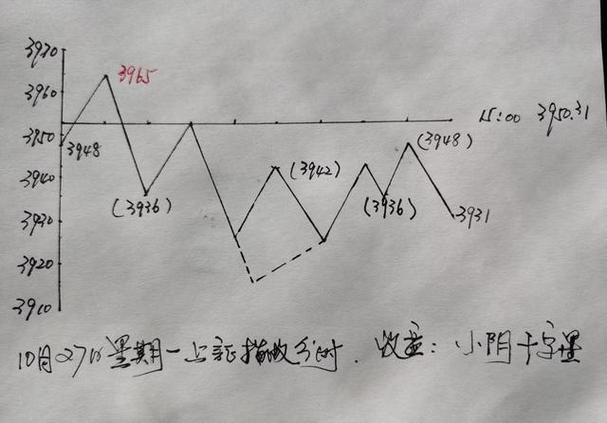 3970
3965
3960
15:00 3950.31
3950
3948
(3948)
3940
(3942)
(3936)
(3936)
3931
3930
3920
3910
10月27日星期一上证指数分时. 收盘: 小阴十字星